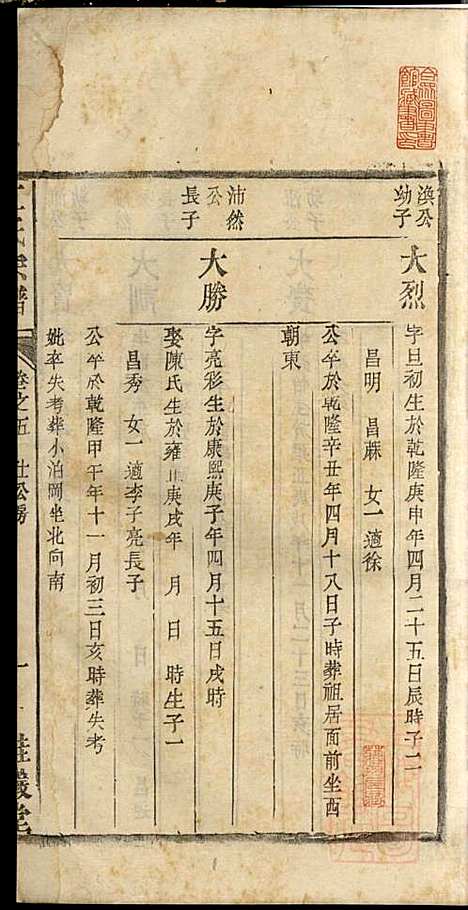 渙公
幼子
大烈
字旦初生於乾隆庚申年四月二十五日辰時子二
昌明 昌蔴 女一適徐
公卒於乾隆辛丑年四月十八日子時葬祖居面前坐西
朝東
沛然
公
長子
大勝
字亮彩生於康熙庚子年四月十五日戌時
娶陳氏生於雍正庚戌年 月 日 時生子一
昌秀 女一適李子亮長子
公卒於乾隆甲午年十一月初三日亥時葬失考
妣卒失考葬小泊岡坐北向南
氏宗譜
卷之五
一